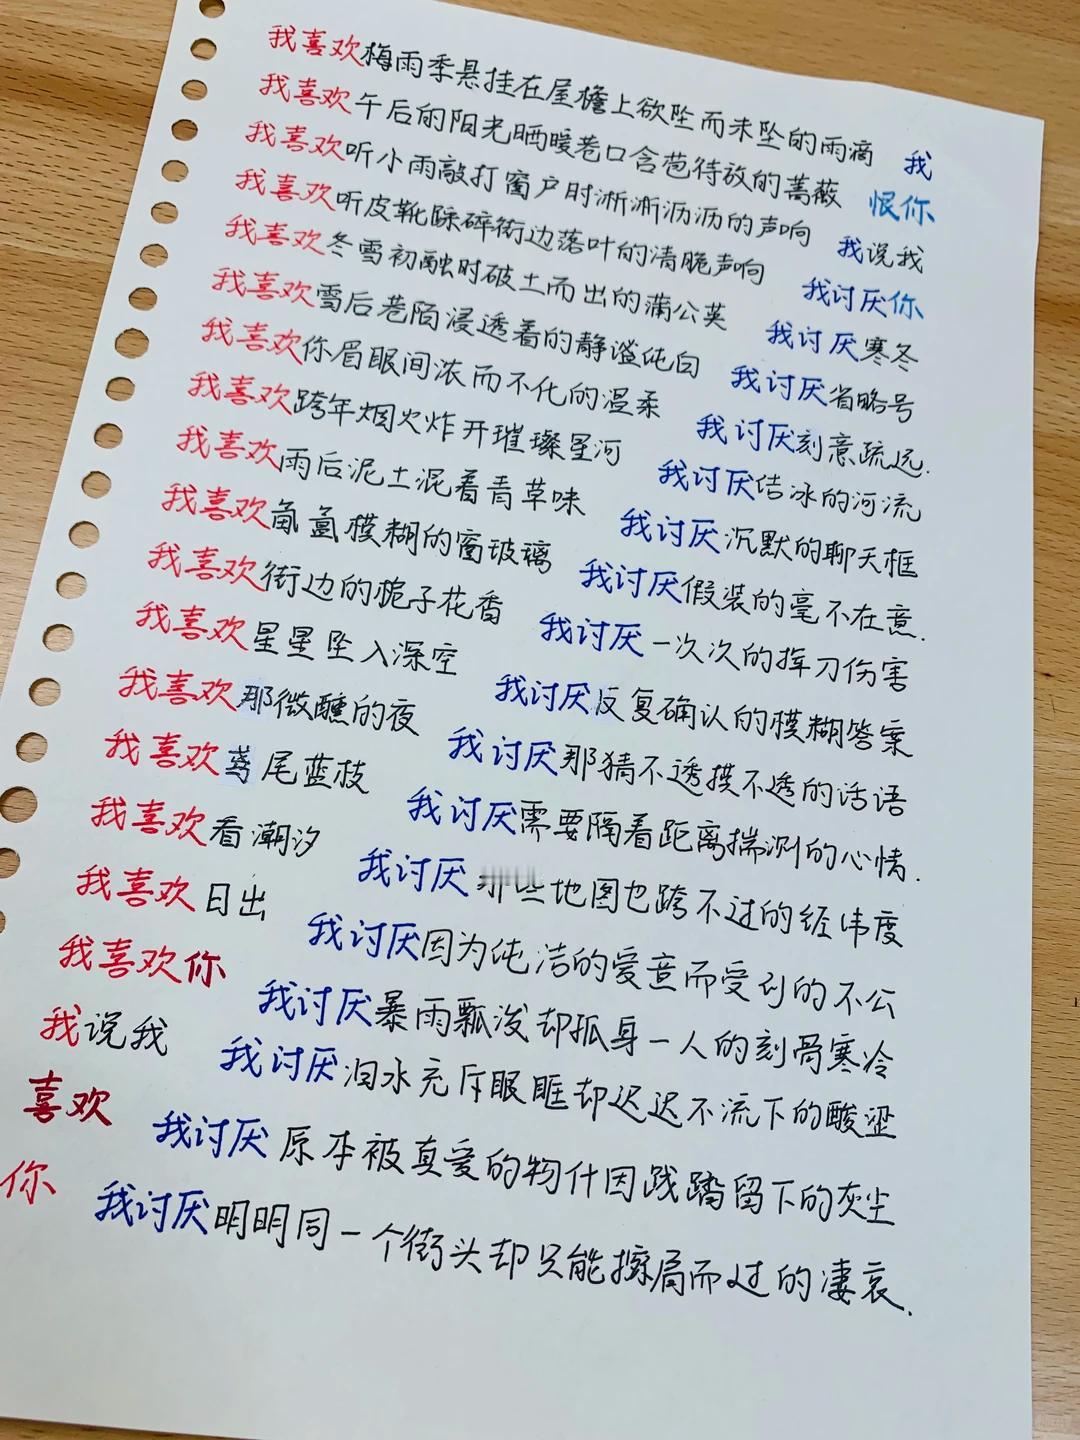 我喜欢梅雨季悬挂在屋檐上欲坠而未坠的雨滴
我喜欢午后的阳光晒暖巷口含苞待放的蔷薇
我喜欢听小雨敲打窗户时淅淅沥沥的声响
我喜欢听皮靴踩碎街边落叶的清脆声响
我喜欢冬雪初融时破土而出的蒲公英
我喜欢雪后巷陌浸透着的静谧纯白
我喜欢你眉眼间浓而不化的温柔
我喜欢跨年烟火炸开璀璨星河
我喜欢雨后泥土混着青草味
我喜欢氤氲模糊的窗玻璃
我喜欢街边的栀子花香
我喜欢星星坠入深空
我喜欢那微醺的夜
我喜欢鸢尾蓝枝
我喜欢看潮汐
我喜欢日出
我喜欢你
我说我
喜欢
你
我
恨你
我说我
我讨厌你
我讨厌寒冬
我讨厌省略号
我讨厌刻意疏远.
我讨厌结冰的河流
我讨厌沉默的聊天框
我讨厌假装的毫不在意.
我讨厌一次次的挥刀伤害
我讨厌反复确认的模糊答案
我讨厌那猜不透摸不透的话语
我讨厌需要隔着距离揣测的心情.
我讨厌那些地图也跨不过的经纬度
我讨厌因为纯洁的爱意而受到的不公
我讨厌暴雨瓢泼却孤身一人的刻骨寒冷
我讨厌泪水充斥眼眶却迟迟不流下的酸涩
我讨厌原本被真爱的物什因践踏留下的灰尘
我讨厌明明同一个街头却只能擦肩而过的凄哀.